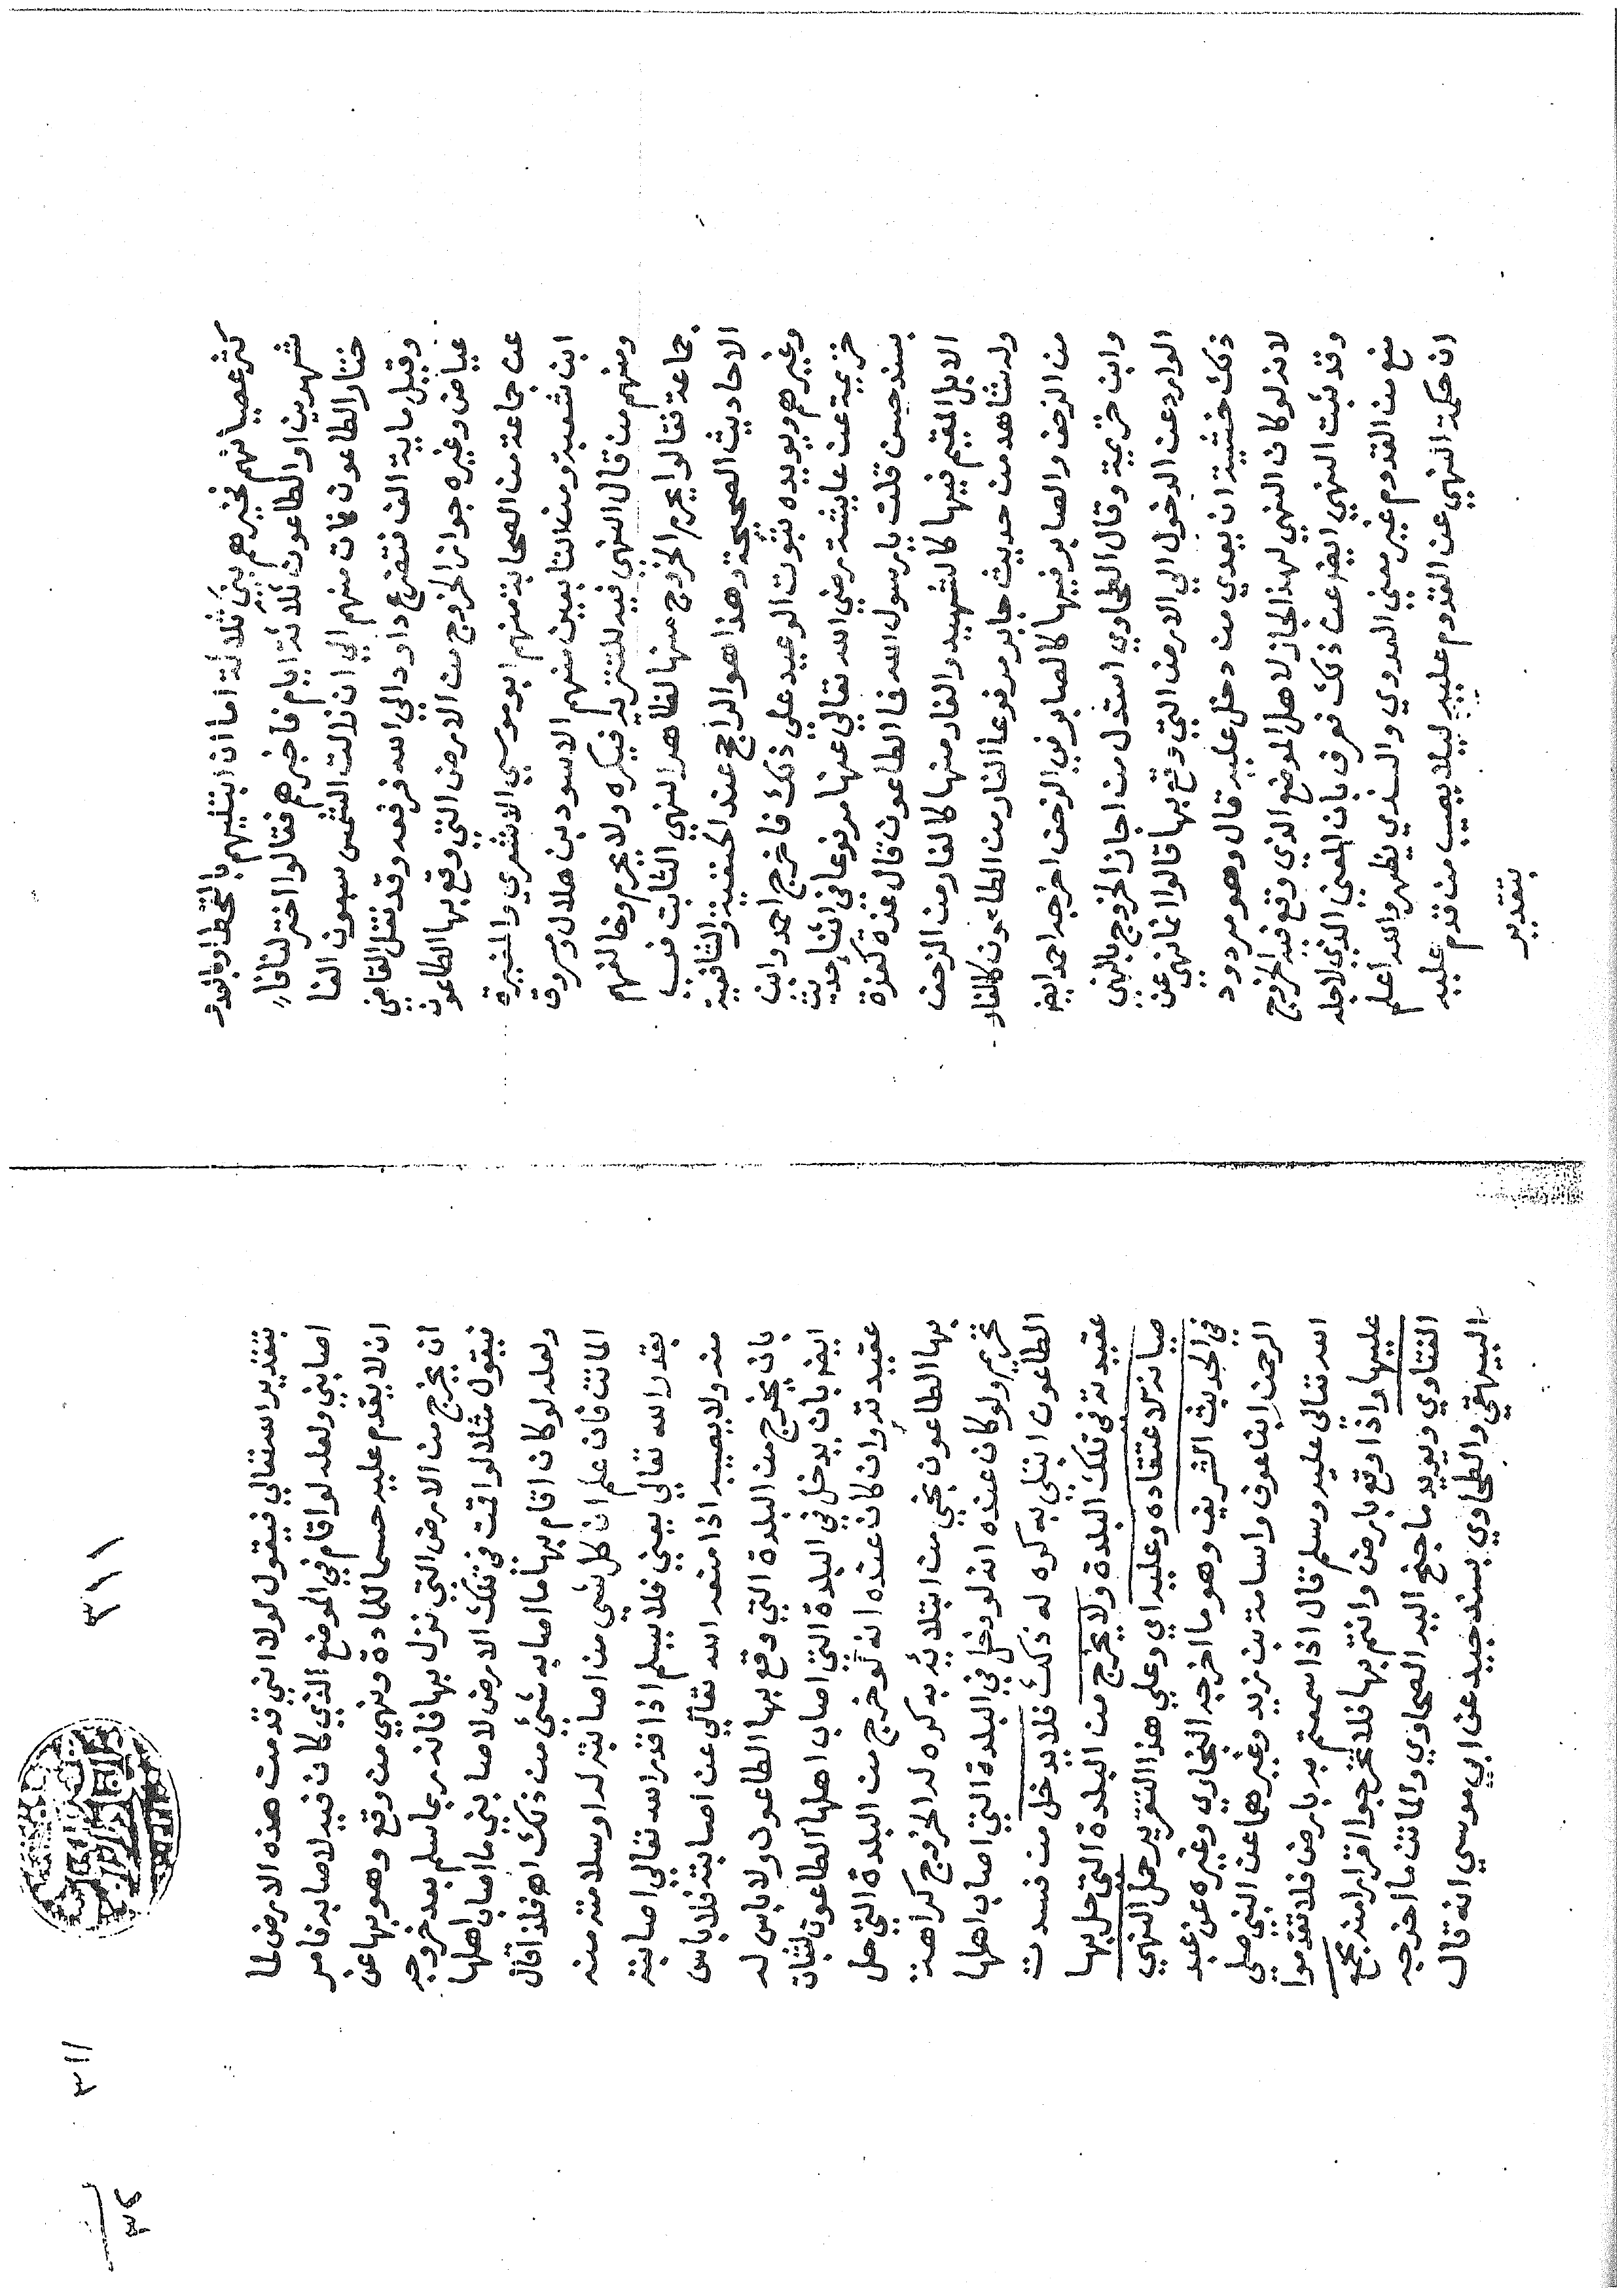 كثر عصيانهم فخيرهم بين ثلاثة اما ان ابتليهم بالقحط او بالعدو
شهرين او الطاعون ثلاثة ايام فاخبرهم فقالوا اختر لنا فا
ختار الطاعون فمات منهم الي ان زالت الشمس سبعون الفا
وقيل ماية الف فتضرع داود الي الله فرفعه وقد نقل القاضي
عياض وغيره جواز الخروج من الارض التي وقع بها الطاعون
عن جماعة من الصحابة منهم ابو موسي الاشعري والمغيرة
ابن شعبة ومن التابعين منهم الاسود بن هلال ومسروق
ومنهم من قال النهي فيه للتنزيه فيكره ولا يحرم وخالفهم
جماعة فقالوا يحرم الخروج منها لظاهر النهي الثابت في
الاحاديث الصحيحة وهذا هو الراجح عند الحنفية والشافعية
وغيرهم ويويده ثبوت الوعيد علي ذلك فاخرج احمد وابن
خزيمة عن عايشة رضي الله تعالي عنها مرفوعا في اثناء حديث
بسند حسن قلت يا رسول الله فما الطاعون قال غدة كغدة
الابل المقيم فيها كالشهيد والفار منها كالفار من الزحف
وله شاهد من حديث جابر مرفوعا الفار من الطاعون كالفار
من الزحف والصابر فيها كالصابر في الزحف اخرجه احمد ايضا
وابن خزيمة وقال الطحاوي استدل من اجاز الخروج بالنهي
الوارد عن الدخول الي الارض التي وقع بها قالوا انما نهي عن
ذلك خشية ان يعدي من دخل عليه قال وهو مردود
لانه لو كان النهي لهذا لجاز لاهل الموضع الذي وقع فيه الخروج
وقد ثبت النهي ايضا عن ذلك فعرف بان المعني الذي لاجله
منع من القدوم غير معني العدوي والذي يظهر والله اعلم
ان حكمة النهي عن القدوم عليه ليلا يصيب من قدم عليه
بتقدير
٣١١
٣١١
بتقدير الله تعالي فيقول لولا اني قدمت هذه الارض لما
اصابني ولعله لو اقام في الموضع الذي كان فيه لاصابه فامر
ان لا يقدم عليه حسما للمادة ونهي من وقع وهو بها عن
ان يخرج من الارض التي نزل بها فانه ربما سلم بعد خروجه
فيقول مثلا لو اقمت في تلك الارض لاصابني ما اصاب اهلها
ولعله لو كان اقام بها ما اصابه شي من ذلك اهـ فلذا قال
الماتن فان علم ان كل شي من اصابته له او سلامته منه
بقدر الله تعالي يعني فلا يسلم اذا قدر الله تعالي اصابته
منه ولا يصيبه اذا منعه الله تعالي عن اصابته فلا باس
بان يخرج من البلدة التي وقع بها الطاعون ولا باس له
ايضا بان يدخل في البلدة التي اصاب اهلها الطاعون لثبات
عقيدته وان كان عنده انه لو خرج من البلدة التي حل
بها الطاعون نجي من ابتلائه به كره له الخروج كراهة
تحريم ولو كان عنده انه لو دخل في البلدة التي اصاب اهلها
الطاعون ابتلي به كره له ذلك فلا يدخل من فسدت
عقيدته في تلك البلدة ولا يخرج من البلدة التي حل بها
صيانة لاعتقاده وعليه اي وعلي هذا التقرير حمل النهي
في الحديث الشريف وهو ما اخرجه البخاري وغيره عن عبد
الرحمن ابن عوف واسامة بن زيد وغيرهما عن النبي صلي
الله تعالي عليه وسلم قال اذا سمعتم به بارض فلا تقدموا
عليها واذا وقع بارض وانتم بها فلا تخرجوا افرارا منه مجمع
الفتاوي ويويد ما جنح اليه الطحاوي والماتن ما اخرجه
البيهقي والطحاوي بسند جيد عن ابي موسي انه قال